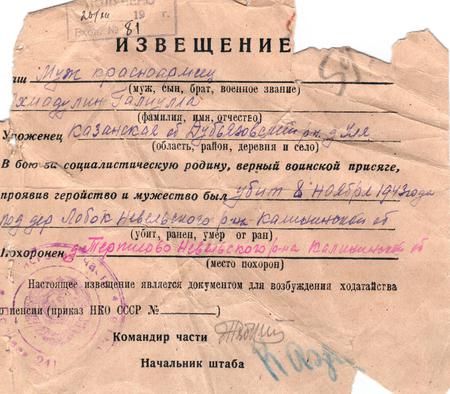 20/III 19 г.
Вход. № 81
ИЗВЕЩЕНИЕ
54
аш Муж красноармеец
(муж, сын, брат, военное звание)
хмадулин Галиулла
(фамилия, имя, отчество)
Уроженец Казанская об Дубъязовский рн. д Уля
(область, район, деревня и село)
В бою за социалистическую родину, верный воинской присяге,
проявив геройство и мужество был убит 8 ноября 1943 года
под дер Лобок Невельского р-на Калининской об
(убит, ранен, умер от ран)
Похоронен д Терпилово Невельского р-на Калининской об
(место похорон)
Настоящее извещение является документом для возбуждения ходатайства
о пенсии (приказ НКО СССР №)
Командир части
Начальник штаба